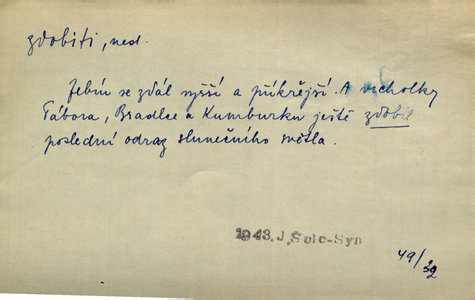 zdobiti, ned.
Zebín se zdál vyšší a příkřejší. A vrcholky
Tábora, Bradlce a Kumburku ještě zdobil
poslední odraz slunečního světla.
1943. J. Šulc-Syn
49/32